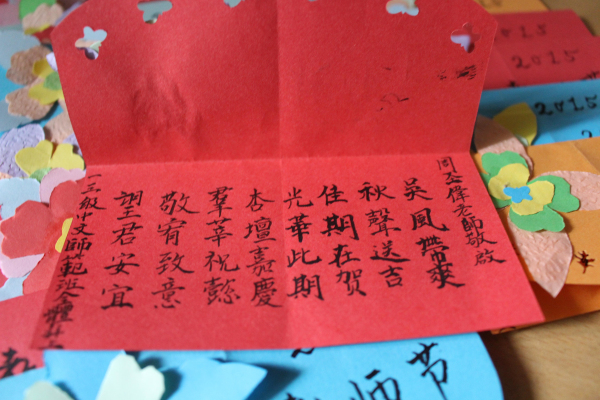 偉老師敬啟
吳風帶爽
秋聲送吉
佳期在賀
光華此期
杏壇嘉慶
羣莘祝懿
敬宥致意
朢君安宜
一三級中文師範班全體
2015
2015
2015
师节